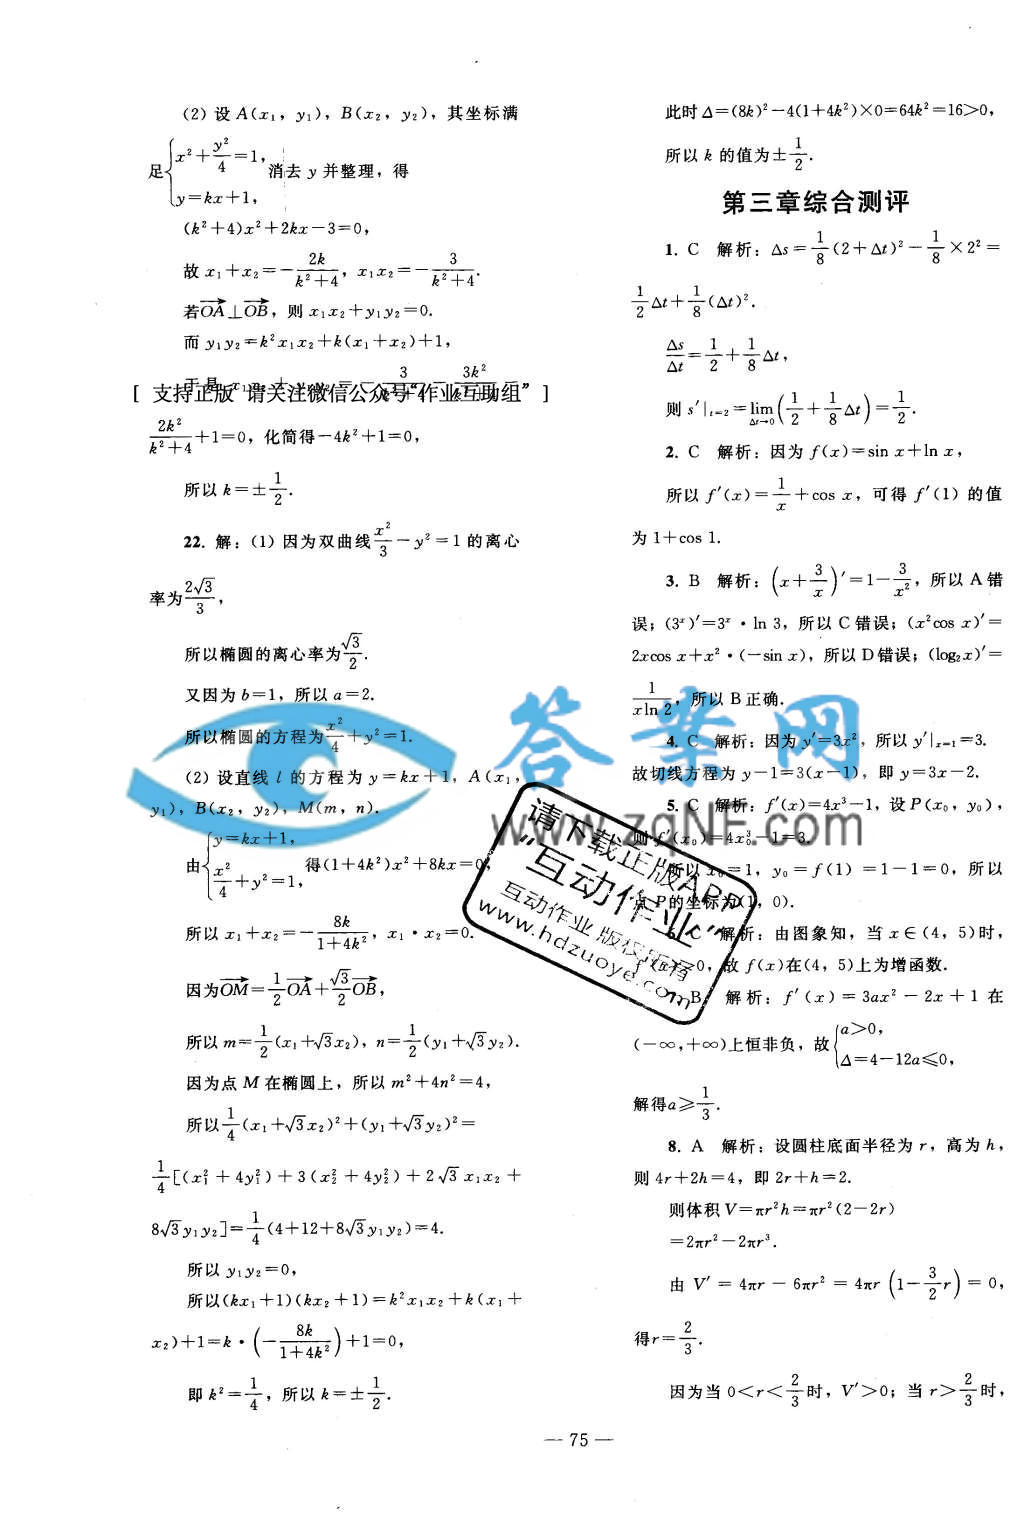 (2) 设 A(x₁, y₁), B(x₂, y₂), 其坐标满
足{x²+y²/4=1, y=kx+1, 消去 y 并整理, 得
(k²+4)x²+2kx-3=0,
故 x₁+x₂=-2k/(k²+4), x₁x₂=-3/(k²+4).
若OA⊥OB, 则 x₁x₂+y₁y₂=0.
而 y₁y₂=k²x₁x₂+k(x₁+x₂)+1,
[ 支持正版 请关注微信公众号“作业互助组” ]
2k²/(k²+4)+1=0, 化简得-4k²+1=0,
所以 k=±1/2.
22. 解: (1) 因为双曲线x²/3-y²=1 的离心
率为2√3/3,
所以椭圆的离心率为√3/2.
又因为 b=1, 所以 a=2.
所以椭圆的方程为x²/4+y²=1.
(2) 设直线 l 的方程为 y=kx+1, A(x₁,
y₁), B(x₂, y₂), M(m, n).
由{y=kx+1, x²/4+y²=1, 得(1+4k²)x²+8kx=0,
所以 x₁+x₂=-8k/(1+4k²), x₁·x₂=0.
因为OM=1/2OA+√3/2OB,
所以 m=1/2(x₁+√3x₂), n=1/2(y₁+√3y₂).
因为点 M 在椭圆上, 所以 m²+4n²=4,
所以1/4(x₁+√3x₂)²+(y₁+√3y₂)²=
1/4[(x₁²+4y₁²)+3(x₂²+4y₂²)+2√3x₁x₂+
8√3y₁y₂]=1/4(4+12+8√3y₁y₂)=4.
所以 y₁y₂=0,
所以(kx₁+1)(kx₂+1)=k²x₁x₂+k(x₁+
x₂)+1=k·(-8k/(1+4k²))+1=0,
即 k²=1/4, 所以 k=±1/2.
此时 Δ=(8k)²-4(1+4k²)×0=64k²=16>0,
所以 k 的值为±1/2.
第三章综合测评
1. C 解析: Δs=1/8(2+Δt)²-1/8×2²=
1/2Δt+1/8(Δt)².
Δs/Δt=1/2+1/8Δt,
则 s′|t=2=lim Δt→0(1/2+1/8Δt)=1/2.
2. C 解析: 因为 f(x)=sin x+ln x,
所以 f′(x)=1/x+cos x, 可得 f′(1) 的值
为 1+cos 1.
3. B 解析: (x+3/x)′=1-3/x², 所以 A 错
误; (3ˣ)′=3ˣ·ln 3, 所以 C 错误; (x²cos x)′=
2xcos x+x²·(-sin x), 所以 D 错误; (log₂x)′=
1/(xln 2), 所以 B 正确.
4. C 解析: 因为 y′=3x², 所以 y′|x=1=3.
故切线方程为 y-1=3(x-1), 即 y=3x-2.
5. C 解析: f′(x)=4x³-1, 设 P(x₀, y₀),
则 f′(x₀)=4x₀³-1=3.
所以 x₀=1, y₀=f(1)=1-1=0, 所以
点 P的坐标为(1, 0).
6. C 解析: 由图象知, 当 x∈(4, 5)时,
f′(x)>0, 故 f(x)在(4, 5)上为增函数.
7. B 解析: f′(x)=3ax²-2x+1 在
(-∞,+∞)上恒非负, 故{a>0, Δ=4-12a≤0,
解得a≥1/3.
8. A 解析: 设圆柱底面半径为 r, 高为 h,
则 4r+2h=4, 即 2r+h=2.
则体积 V=πr²h=πr²(2-2r)
=2πr²-2πr³.
由 V′=4πr-6πr²=4πr(1-3/2r)=0,
得r=2/3.
因为当 0<r<2/3时, V′>0; 当 r>2/3时,
答案网
www.zqNF.com
请下载正版APP
“互动作业”
互动作业 版权所有
www.hdzuoye.com
— 75 —